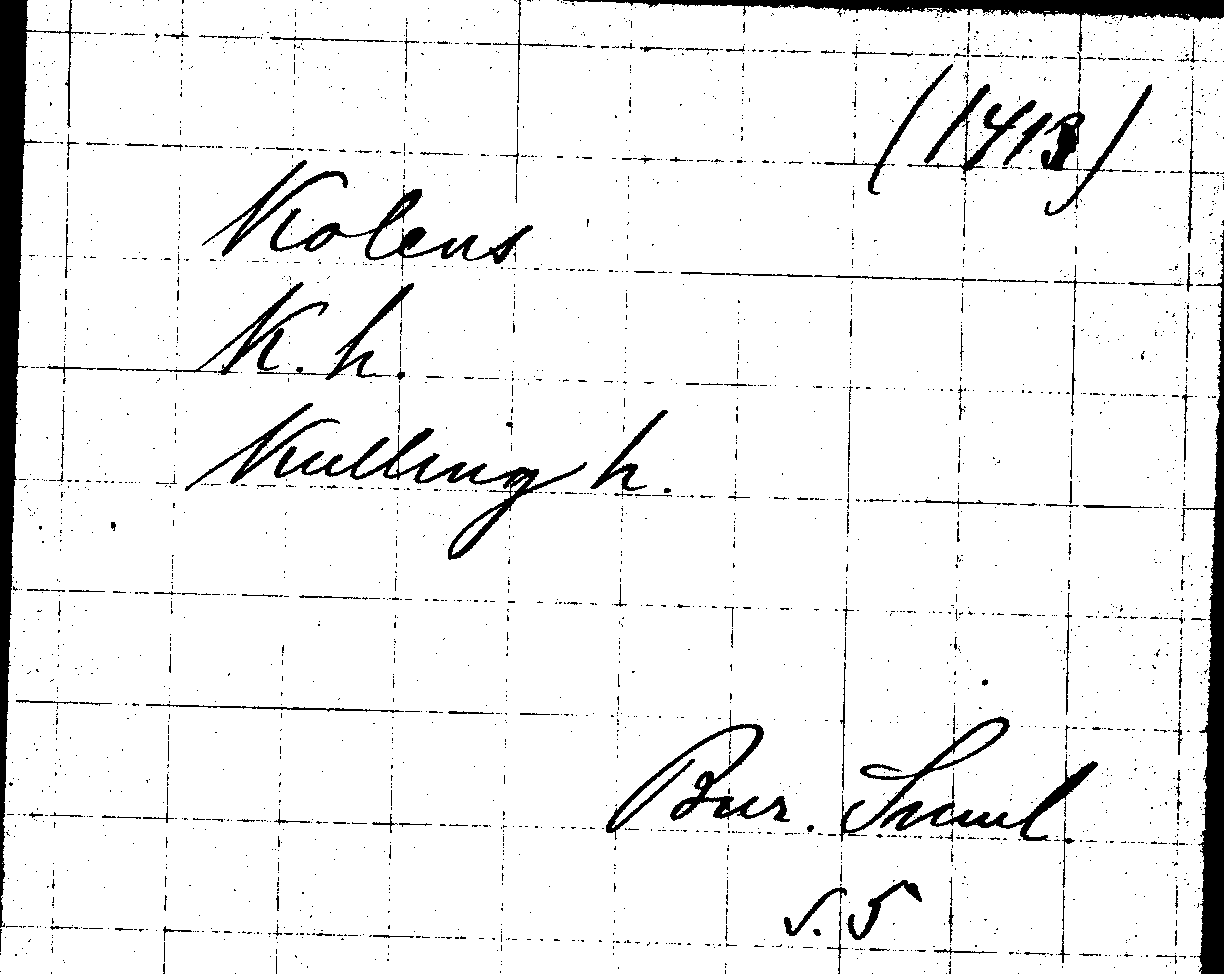 (1413)
Kolens
K. h.
Kulling h.
Bur. Saml.
s. 5